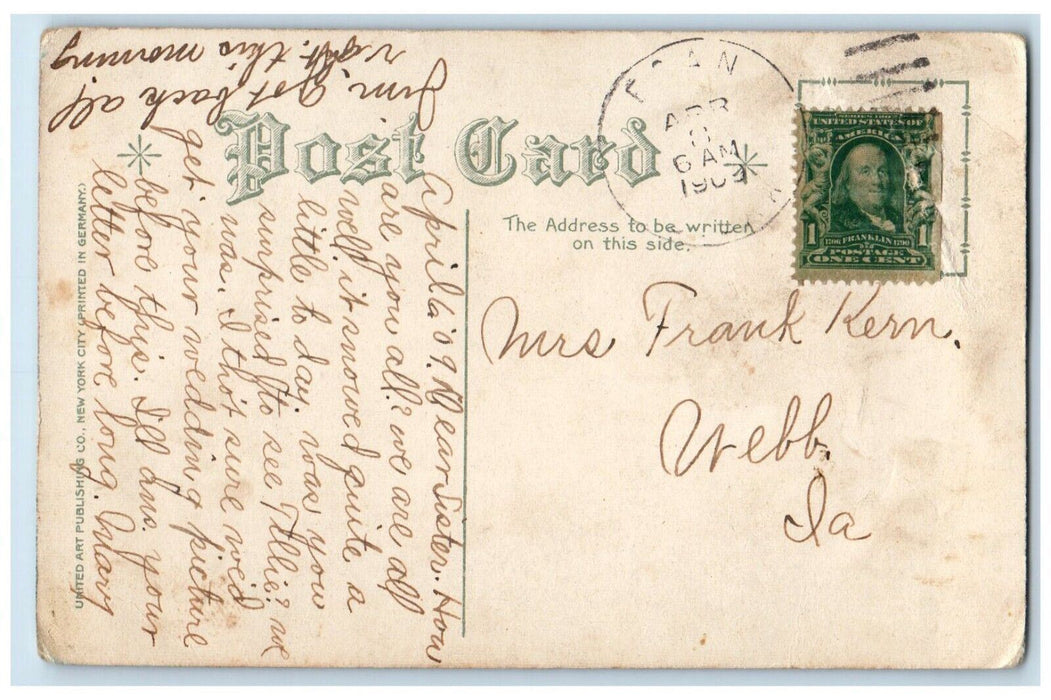 Post Card
The Address to be written
on this side.
UNITED ART PUBLISHING CO., NEW YORK CITY (PRINTED IN GERMANY.)
APR
6 AM
1909
SERIES 1902
UNITED STATES OF
AMERICA
1
1706 FRANKLIN 1790
1
POSTAGE
ONE CENT
Mrs Frank Kern.
Webb.
Ia
'09. Dear Sister. How
are you all? we are all
well. it snowed quite a
little to day. was you
surprised to see Tillie? we
was. I tho't sure we'd
get your wedding picture
before this. I'll ans. your
letter before long. Mary
Jim got back all
right. this morning